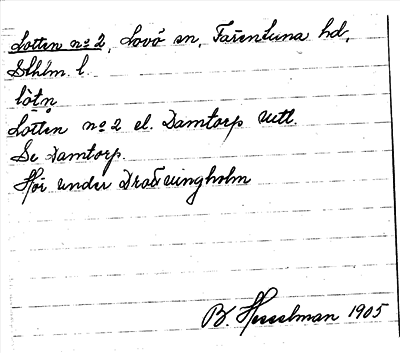 Lotten nº 2, Lovö sn, Färentuna hd,
Sthlm. l.
lòtn̥
Lotten nº 2 el. Damtorp utt.
Se Damtorp.
Hör under Drottningholm
B. Hesselman 1905